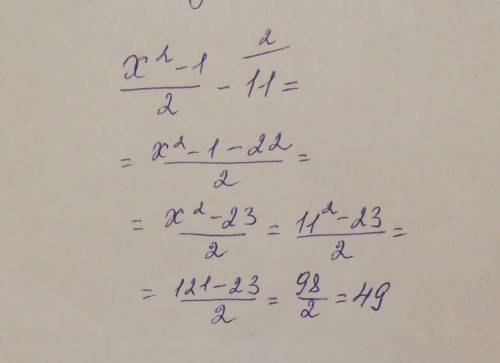 x² - 1 / 2 - 11 2/ =
= x² - 1 - 22 / 2 =
= x² - 23 / 2 = 11² - 23 / 2 =
= 121 - 23 / 2 = 98 / 2 = 49